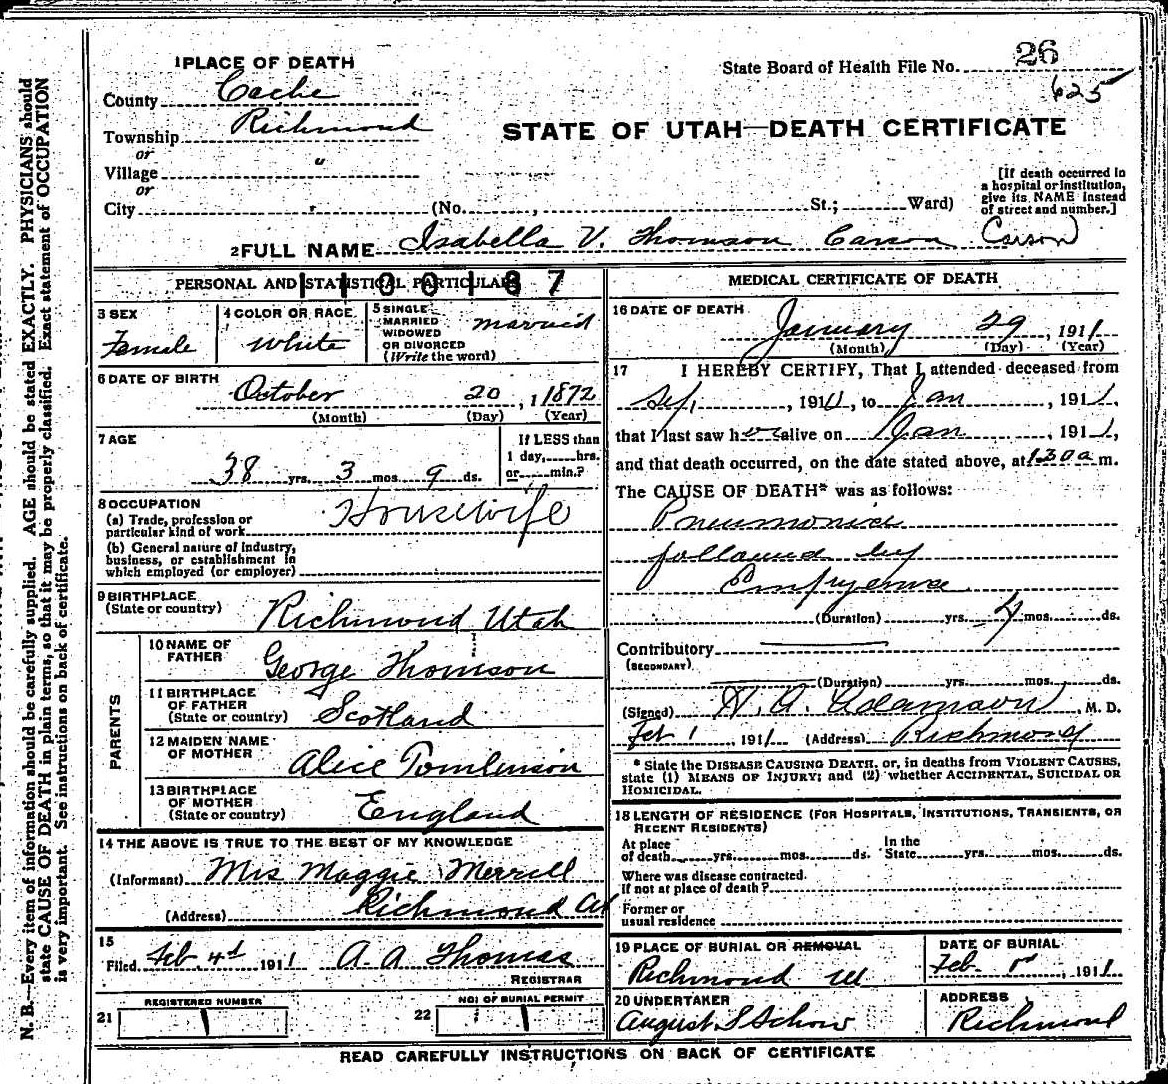 26
625
1 PLACE OF DEATH
State Board of Health File No.
County Cache
Township Richmond
or
Village "
or
City (No. , St.; Ward)
STATE OF UTAH—DEATH CERTIFICATE
[If death occurred in
a hospital or institution,
give its NAME instead
of street and number.]
2 FULL NAME Isabella V. Thomson Carson Carson
PERSONAL AND STATISTICAL PARTICULARS
1100187
3 SEX
Female
4 COLOR OR RACE
White
5 SINGLE
MARRIED
WIDOWED
OR DIVORCED
(Write the word)
married
6 DATE OF BIRTH
October 20, 1 1872
(Month) (Day) (Year)
7 AGE
38 yrs. 3 mos. 9 ds.
If LESS than
1 day, hrs.
or min.?
8 OCCUPATION
(a) Trade, profession or
particular kind of work
Housewife
(b) General nature of Industry,
business, or establishment in
which employed (or employer)
9 BIRTHPLACE
(State or country)
Richmond Utah
PARENTS
10 NAME OF
FATHER
George Thomson
11 BIRTHPLACE
OF FATHER
(State or country)
Scotland
12 MAIDEN NAME
OF MOTHER
Alice Tomlinson
13 BIRTHPLACE
OF MOTHER
(State or country)
England
14 THE ABOVE IS TRUE TO THE BEST OF MY KNOWLEDGE
(Informant) Mrs Maggie Merrill
(Address) Richmond Ut
15
Filed Feb. 4th 1911 A. A Thomas
REGISTRAR
REGISTERED NUMBER
21 1
NO. OF BURIAL PERMIT
22 1
MEDICAL CERTIFICATE OF DEATH
16 DATE OF DEATH
January 29, 1911
(Month) (Day) (Year)
17 I HEREBY CERTIFY, That I attended deceased from
Sep, 1910, to Jan, 1911,
that I last saw her alive on Jan, 1911,
and that death occurred, on the date stated above, at 130 a m.
The CAUSE OF DEATH* was as follows:
Pneumonia
followed by
Empyema
(Duration) yrs. 4 mos. ds.
Contributory
(SECONDARY)
(Duration) yrs. mos. ds.
(Signed) A. Adamson, M. D.
Feb 1, 1911 (Address) Richmond
* State the DISEASE CAUSING DEATH, or, in deaths from VIOLENT CAUSES,
state (1) MEANS OF INJURY; and (2) whether ACCIDENTAL, SUICIDAL OR
HOMICIDAL.
18 LENGTH OF RESIDENCE (FOR HOSPITALS, INSTITUTIONS, TRANSIENTS, OR
RECENT RESIDENTS)
At place
of death yrs. mos. ds.
In the
State yrs. mos. ds.
Where was disease contracted.
If not at place of death?
Former or
usual residence
19 PLACE OF BURIAL OR REMOVAL
Richmond Ut
DATE OF BURIAL
Feb. 1st, 1911
20 UNDERTAKER
August S Schow
ADDRESS
Richmond
READ CAREFULLY INSTRUCTIONS ON BACK OF CERTIFICATE
N. B.—Every item of information should be carefully supplied. AGE should be stated EXACTLY. PHYSICIANS should
state CAUSE OF DEATH in plain terms, so that it may be properly classified. Exact statement of OCCUPATION
is very important. See instructions on back of certificate.